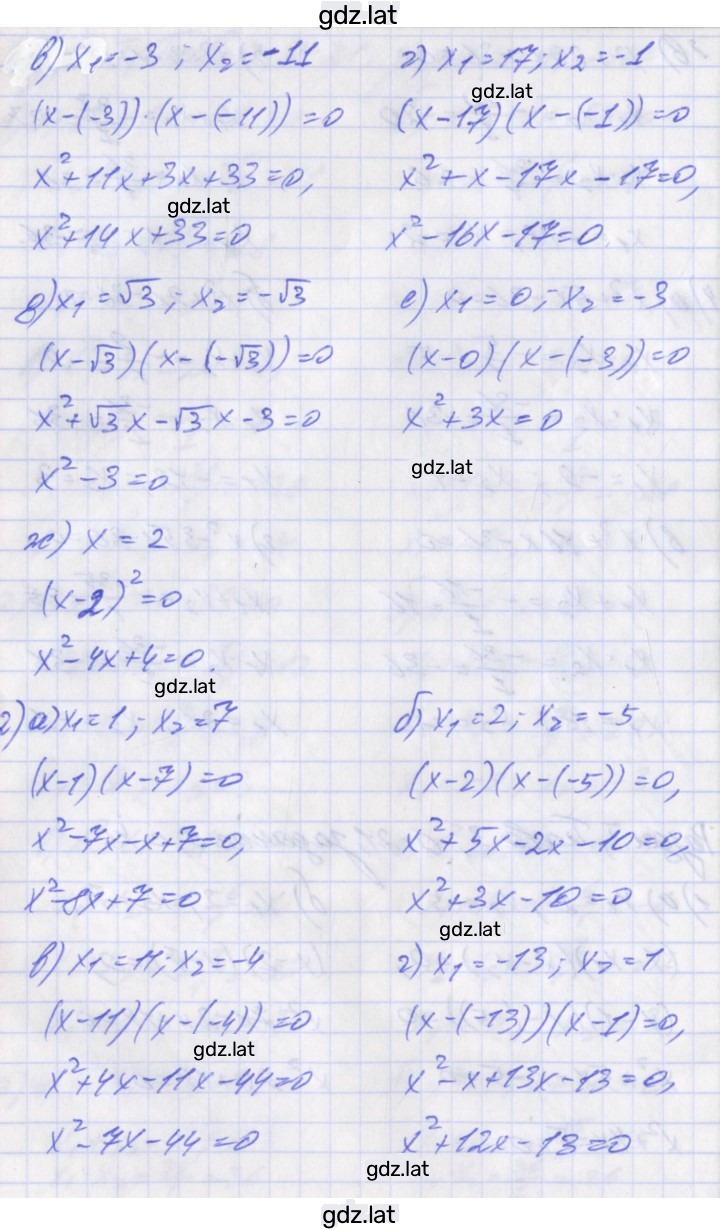 gdz.lat
в) x₁=-3 ; x₂=-11
(x-(-3))·(x-(-11))=0
x²+11x+3x+33=0,
gdz.lat
x²+14x+33=0
г) x₁=17; x₂=-1
gdz.lat
(x-17)(x-(-1))=0
x²+x-17x-17=0,
x²-16x-17=0.
д) x₁=√3; x₂=-√3
(x-√3)(x-(-√3))=0
x²+√3x-√3x-3=0
x²-3=0
е) x₁=0; x₂=-3
(x-0)(x-(-3))=0
x²+3x=0
gdz.lat
ж) x=2
(x-2)²=0
x²-4x+4=0.
gdz.lat
2) а) x₁=1; x₂=7
(x-1)(x-7)=0
x²-7x-x+7=0,
x²-8x+7=0
б) x₁=2; x₂=-5
(x-2)(x-(-5))=0,
x²+5x-2x-10=0,
x²+3x-10=0
gdz.lat
в) x₁=11; x₂=-4
(x-11)(x-(-4))=0
gdz.lat
x²+4x-11x-44=0
x²-7x-44=0
г) x₁=-13; x₂=1
(x-(-13))(x-1)=0,
x²-x+13x-13=0,
x²+12x-13=0
gdz.lat
gdz.lat